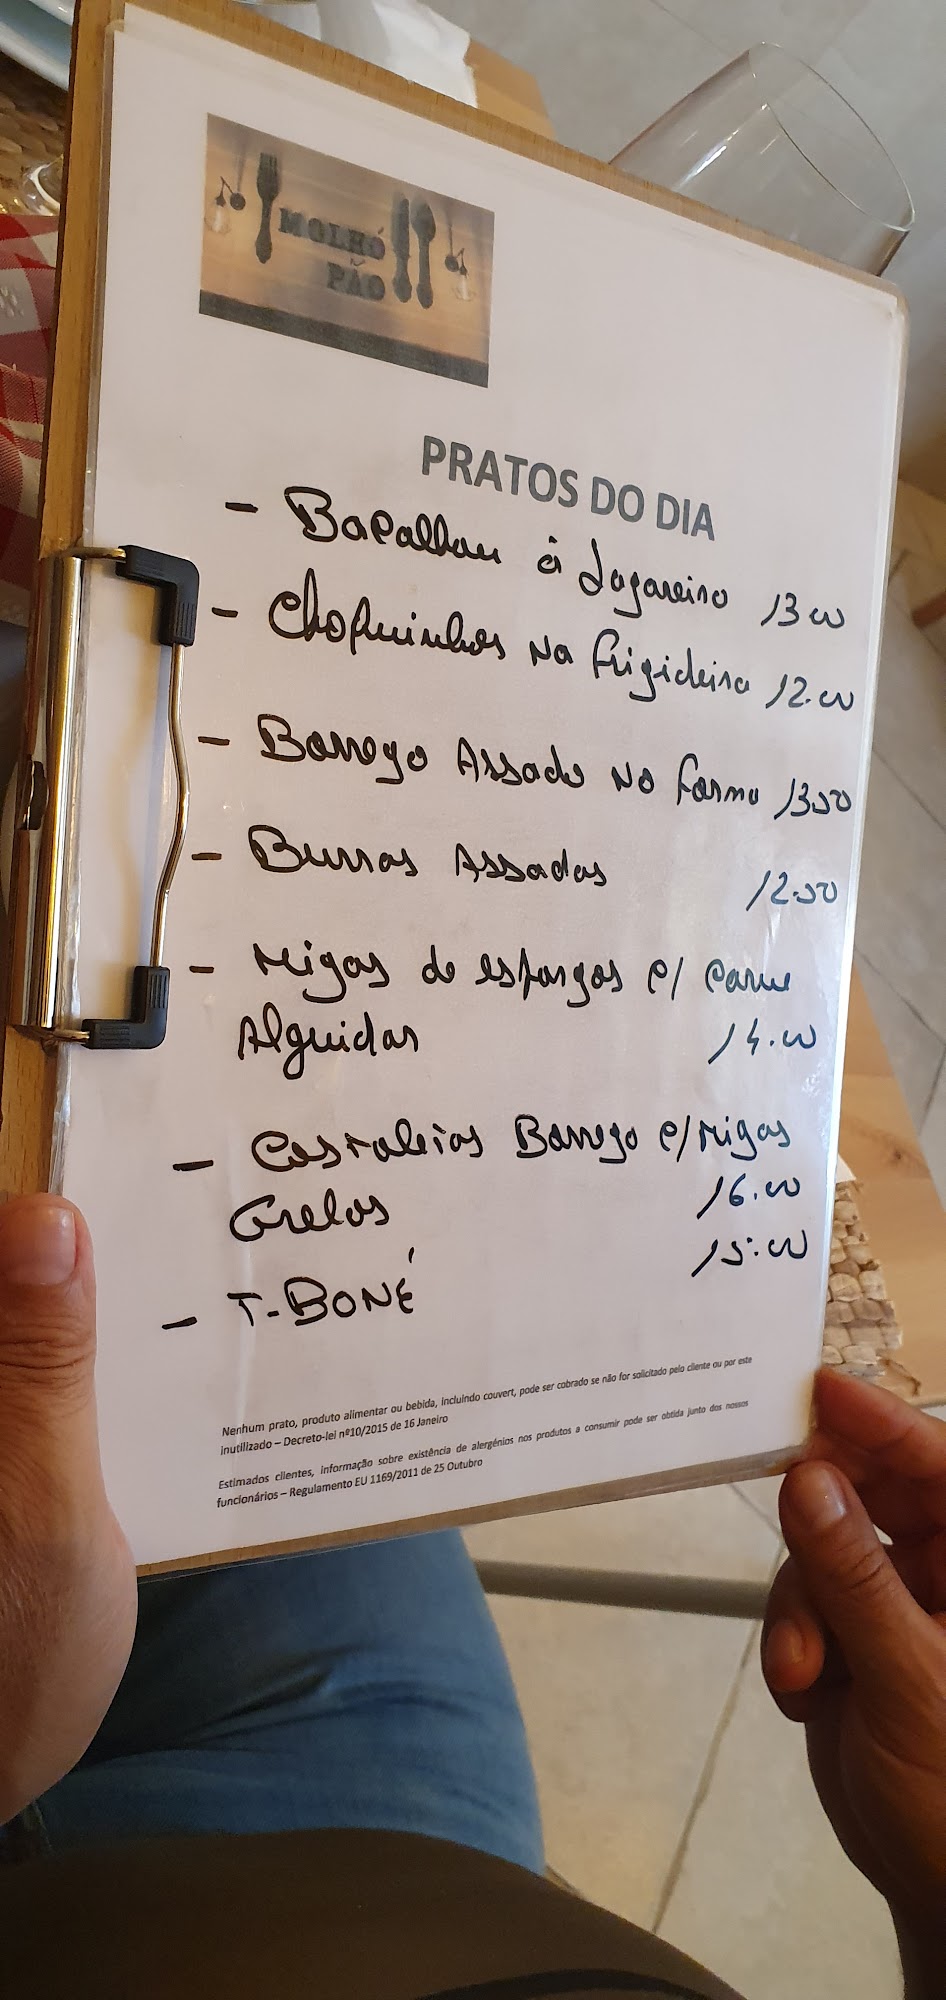 MOLHÓ
PÃO
PRATOS DO DIA
- Bacalhau à Lagareiro 13.00
- Choquinhos na frigideira 12.00
- Borrego Assado no forno 13.50
- Burras Assadas 12.50
- Migas de espargos c/ carne
Alguidar 14.00
- Costeletas Borrego c/ Migas
Grelos 16.00
- T-BONÉ 15.00
Nenhum prato, produto alimentar ou bebida, incluindo couvert, pode ser cobrado se não for solicitado pelo cliente ou por este
inutilizado – Decreto-lei nº10/2015 de 16 Janeiro
Estimados clientes, informação sobre existência de alergénios nos produtos a consumir pode ser obtida junto dos nossos
funcionários – Regulamento EU 1169/2011 de 25 Outubro